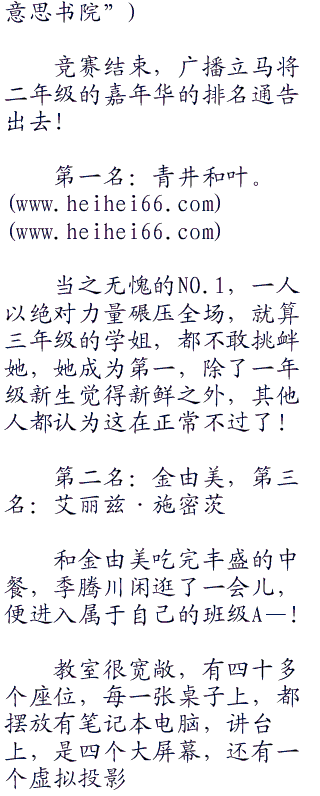 意思书院”)
竞赛结束，广播立马将
二年级的嘉年华的排名通告
出去！
第一名：青井和叶。
(www.heihei66.com)
(www.heihei66.com)
当之无愧的NO.1，一人
以绝对力量碾压全场，就算
三年级的学姐，都不敢挑衅
她，她成为第一，除了一年
级新生觉得新鲜之外，其他
人都认为这在正常不过了！
第二名：金由美，第三
名：艾丽兹·施密茨
和金由美吃完丰盛的中
餐，季腾川闲逛了一会儿，
便进入属于自己的班级A—！
教室很宽敞，有四十多
个座位，每一张桌子上，都
摆放有笔记本电脑，讲台
上，是四个大屏幕，还有一
个虚拟投影